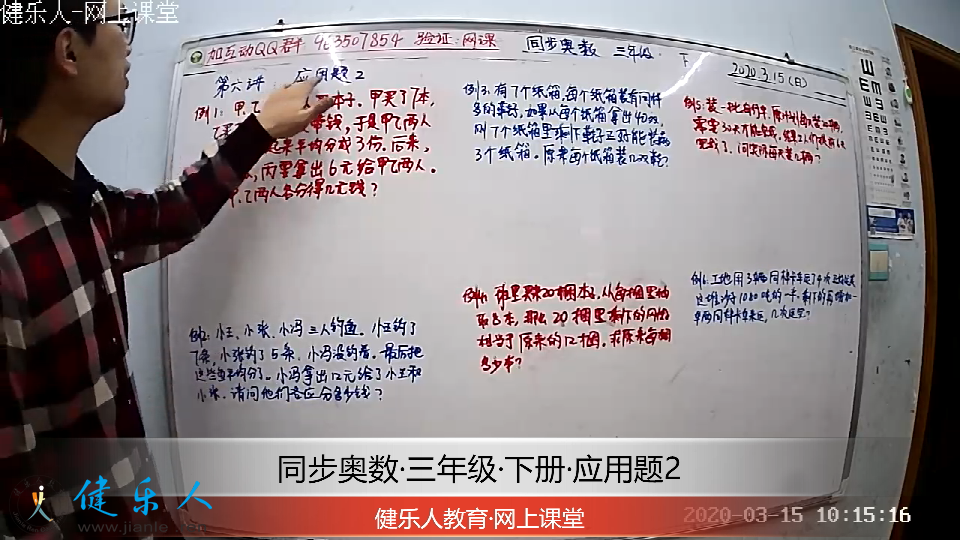 健乐人-网上课堂
加互动QQ群 463507854 验证:网课
同步奥数 三年级 下
2020.3.15(日)
第六讲 应用题2
例1:甲、乙 本子.甲买了7本,
带钱,于是甲乙两人
起来平均分成3份.后来,
丙要拿出6元给甲乙两人.
甲、乙两人各分得几元钱?
例2:小王、小张、小冯三人钓鱼.小王钓了
7条,小张钓了5条,小冯没钓着.最后把
这些鱼平均分了.小冯拿出12元给了小王和
小张.请问他们各应分多少钱?
例3.有7个纸箱,每个纸箱装有同样
多的鞋子,如果从每个纸箱拿出40双,
则7个纸箱里剩下鞋子正好能装满
3个纸箱.原来每个纸箱装几双鞋?
例4.班里买来20捆本子,从每捆里抽
取8本,那么20捆里剩下的刚好
相当于原来的12捆.求原来每捆
多少本?
例5:装一批自行车,原计划每天装
需要30天才能完成,
问实际每天装几辆?
例6.工地用3辆同种卡车运了4次
这堆沙子1080吨的一半.剩下的再增加一
辆同种卡车来运,几次运完?
同步奥数·三年级·下册·应用题2
健乐人
www.jianle
健乐人教育·网上课堂
2020-03-15 10:15:16